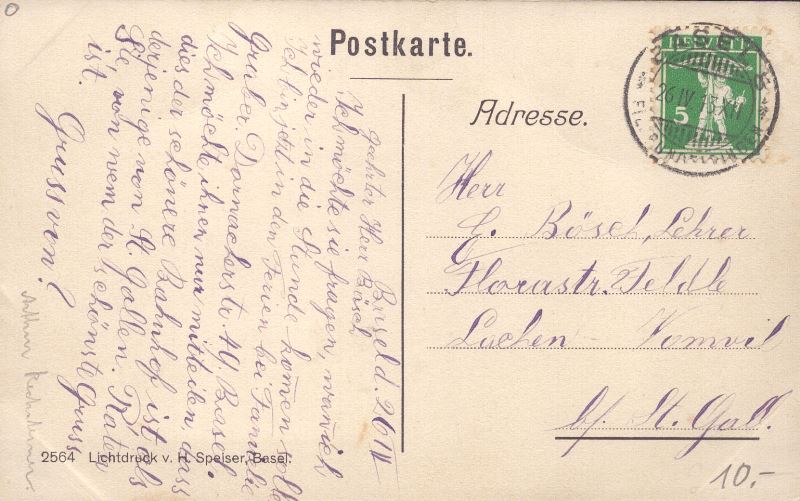 Postkarte.
Adresse.
HELVETIA
5
BASEL
26 IV
Herr
G. Bösch, Lehrer
Florastr. Feldle
Lachen - Vonwil
b/ St. Gall.
10.-
Basel d. 26 IV
Geehrter Herr Bösch
Ich möchte sie fragen, wan ich
wieder in die Stunde komen soll.
Ich bin jetzt in den Ferien bei Familie
Graber. Dornacherstr. 49. Basel.
Ich möchte ihnen nur mitteilen, dass
dies der schönere Bahnhof ist als
derjenige von St. Gallen. Raten
Sie, von wem der schönste Gruss
ist.
Gruss von?
Arthur
2564 Lichtdruck v. H. Speiser, Basel.